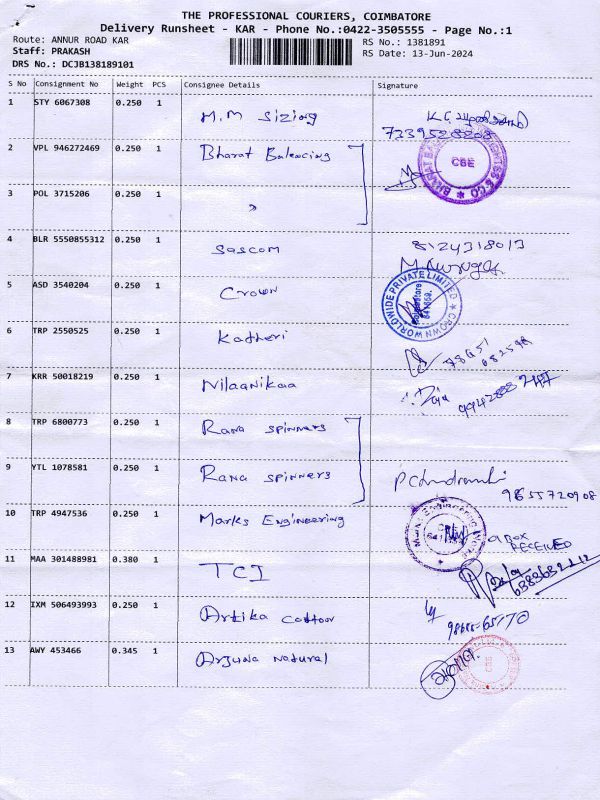 THE PROFESSIONAL COURIERS, COIMBATORE
Delivery Runsheet - KAR - Phone No.:0422-3505555 - Page No.:1
Route: ANNUR ROAD KAR RS No.: 1381891
Staff: PRAKASH RS Date: 13-Jun-2024
DRS No.: DCJB138189101
S No Consignment No Weight PCS Consignee Details Signature
1 STY 6067308 0.250 1 M.M Sizing
7339528208
2 VPL 946272469 0.250 1 Bharat Balancing
CBE
3 POL 3715206 0.250 1 "
4 BLR 5550855312 0.250 1 Sascom 8124318013
5 ASD 3540204 0.250 1 Crown
CROWN WORLDWIDE PRIVATE LIMITED
6 TRP 2550525 0.250 1 Katheri
7 KRR 50018219 0.250 1 Nilaanikaa
8 TRP 6800773 0.250 1 Rana spinners
9 YTL 1078581 0.250 1 Rana spinners
9655720908
10 TRP 4947536 0.250 1 Marks Engineering
BOX RECEIVED
11 MAA 301488981 0.380 1 TCI
12 IXM 506493993 0.250 1 Artika cotton
13 AWY 453466 0.345 1 Arjuna Natural